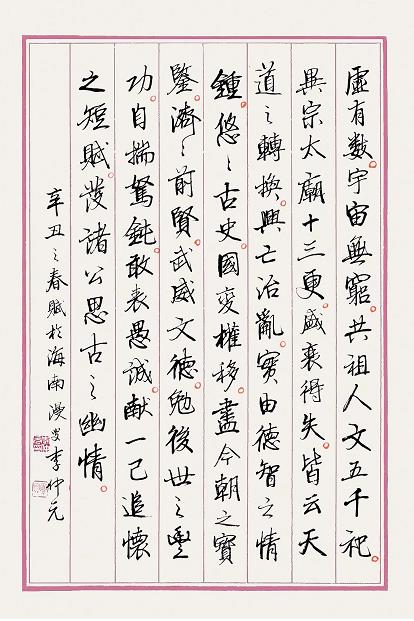 虛有数。宇宙無窮。共祖人文五千祀。
異宗太廟十三更。盛衰得失。皆云天
道之轉換。興亡治亂。實由德智之情
鍾。悠々古史。國変權移。盡今朝之寶
鑒。濟々前賢。武威文德。勉後世之豐
功。自揣駑鈍。敢表愚誠。献一己追懷
之短賦。發諸公思古之幽情。
辛丑之春賦於海南漫叟李仲元